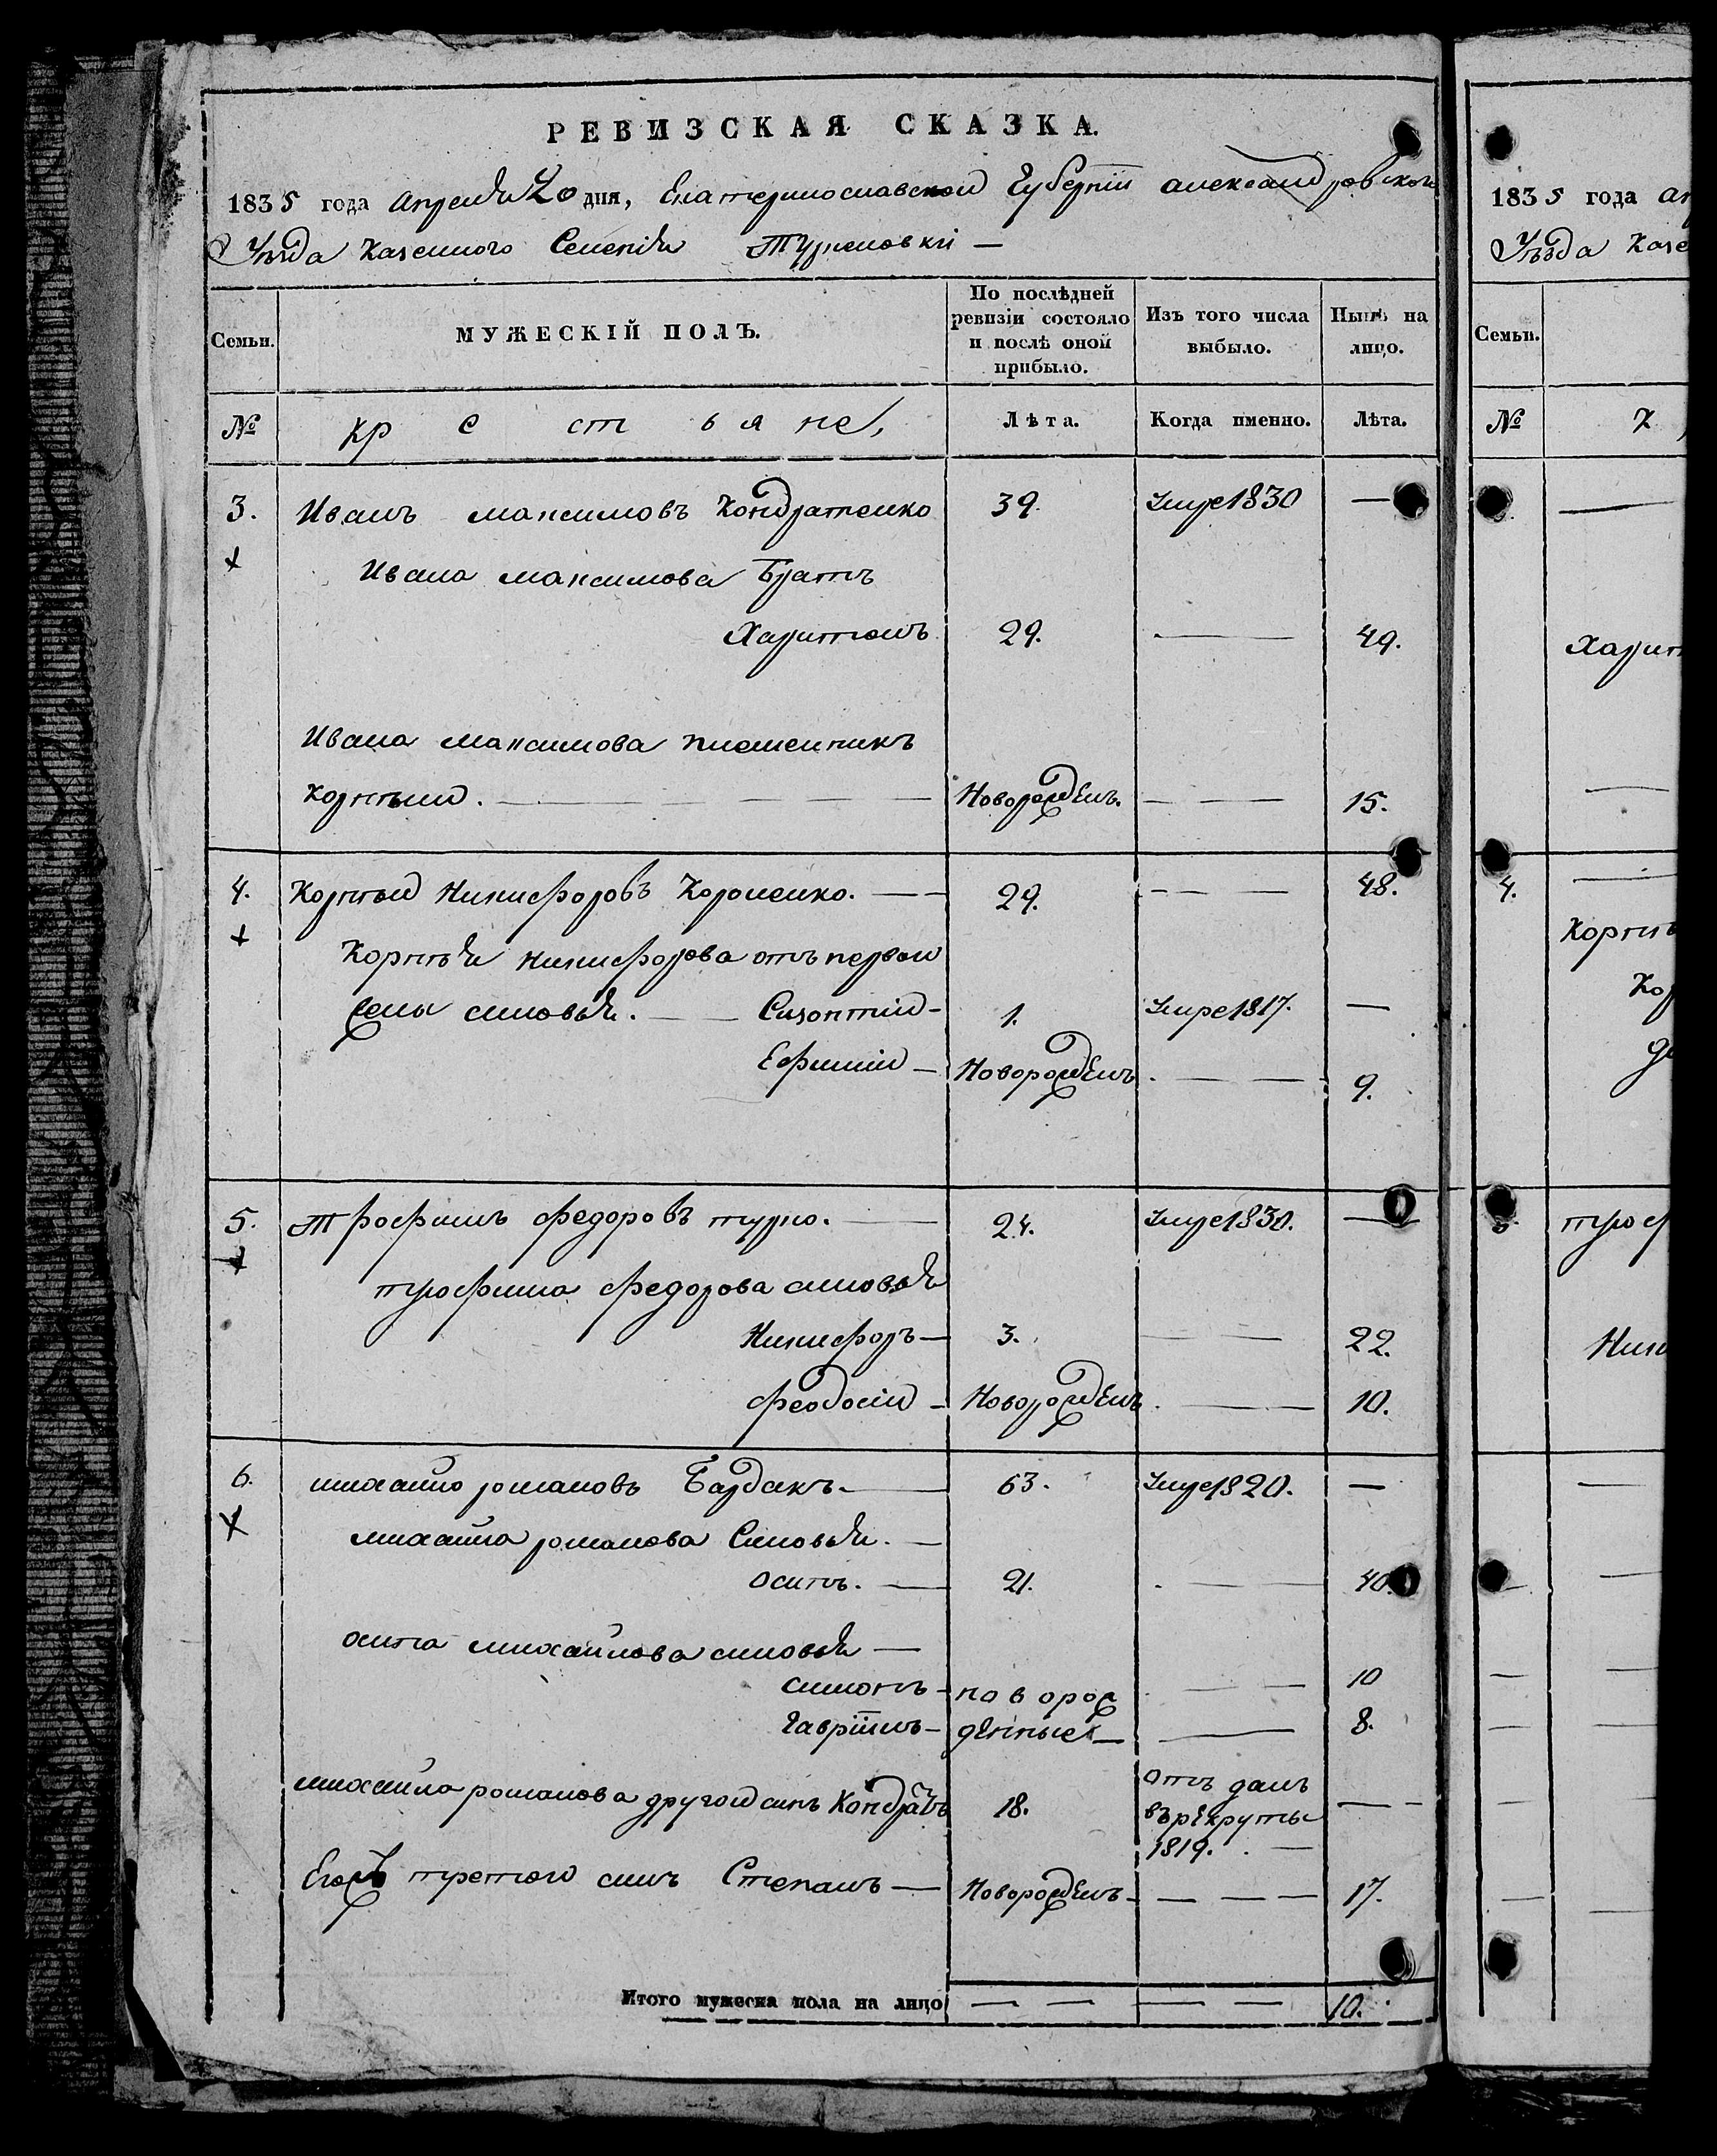 РЕВИЗСКАЯ СКАЗКА.
1835 года Апреля 20 дня, Екатеринославской Губернии александровского
Уезда Казенного Селения Туркеновки —
Семьи. МУЖЕСКІЙ ПОЛЪ. По послѣдней ревизіи состояло и послѣ оной прибыло. Изъ того числа выбыло. Нынѣ на лицо.
№ крестьяне, Лѣта. Когда именно. Лѣта.
3. Иванъ максимовъ Кондратенко 39. Умре 1830 —
Ивана максимова Братъ
Харитонъ 29. — 49.
Ивана максимова племенникъ
Корней. — Новорожденъ. — — 15.
4. Корней Никифоровъ Короленко. — 29. — — 48.
Корнея никифорова отъ первой
жены сыновья. — Сизонтий - 1. Умре 1817. —
Ефимий — Новорожденъ — — 9.
5. Трофимъ федоровъ турко. — 24. Умре 1830. —
трофима федорова сыновья
Никифоръ — 3. — 22.
феодосий — Новорожденъ. — 10.
6. михайло романовъ Бардакъ. — 63. Умре 1820. —
михайла романова Сыновья. —
осипъ. — 21. — 40.
осипа михайлова сыновья —
симонъ - новорож — — 10
Гавріилъ - денные — — 8.
михайла романова другой сынъ Кондратъ 18. отъ данъ
въ рекруты
1819. —
Егожъ третой сынъ Степанъ — Новорожденъ — — — 17.
Итого мужеска пола на лицо — — — — 10.
1835 года
Уезда
Семьи.
№
4.